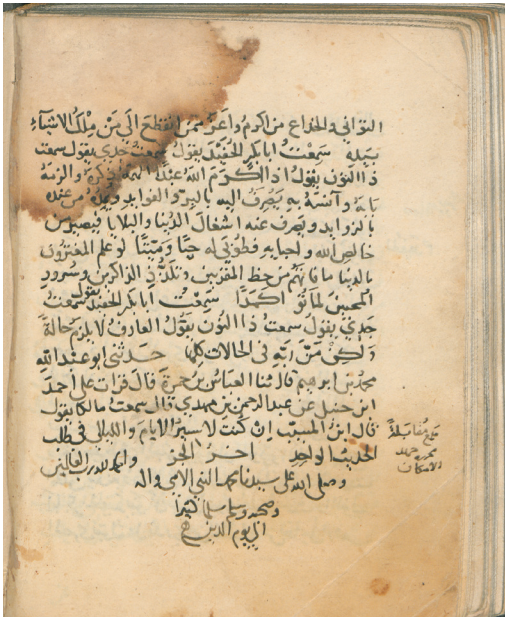 التوانى والخداع من اكرم واعز ممن انقطع الى من ملك الاشياء
بيده سمعت ابا بكر الحفيد يقول سمعت جدي يقول سمعت
ذا النون يقول اذا اكرم الله عبدا الهمه ذكره والزمه
بابه وآنسه به يصرف اليه بالبر والفوايد ويمده من عنده
بالزوايد ويصرف عنه اشغال الدنيا والبلايا فيصير من
خالص الله واحبابه فطوبى له حيا وميتا لو علم المغترون
بالدنيا ما فاتهم من حظ المقربين وتلذذ الذاكرين وسرور
المحبين لماتوا كمدا سمعت ابا بكر الحفيد يقول سمعت
جدي يقول سمعت ذا النون يقول العارف لا يلزم حالة
ولكن من ربه في الحالات كلها حدثنى ابو عبد الله
محمد بن ابرهيم قال ثنا العباس بن حمزة قال قرات على احمد
ابن حنبل عن عبد الرحمن بن مهدي قال سمعت مالكا يقول
قال ابن المسيب ان كنت لاسير الايام والليالي في طلب
الحديث الواحد اخر الجزء والحمد لله رب العالمين
وصلى الله على سيدنا محمد النبي الامي واله
وصحبه وسلم تسليما كثيرا
الى يوم الدين
بلغ مقابلة
الامكان